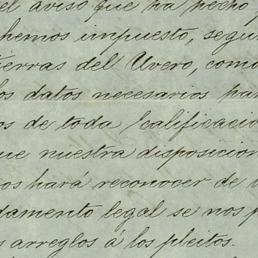 el aviso que ha hecho
hemos impuesto, segu
ierras del Uvero, como
los datos necesarios par
os de toda calificació
que nuestra disposición
os hará reconocer de
damento legal se nos p
s arreglos á los pleitos.